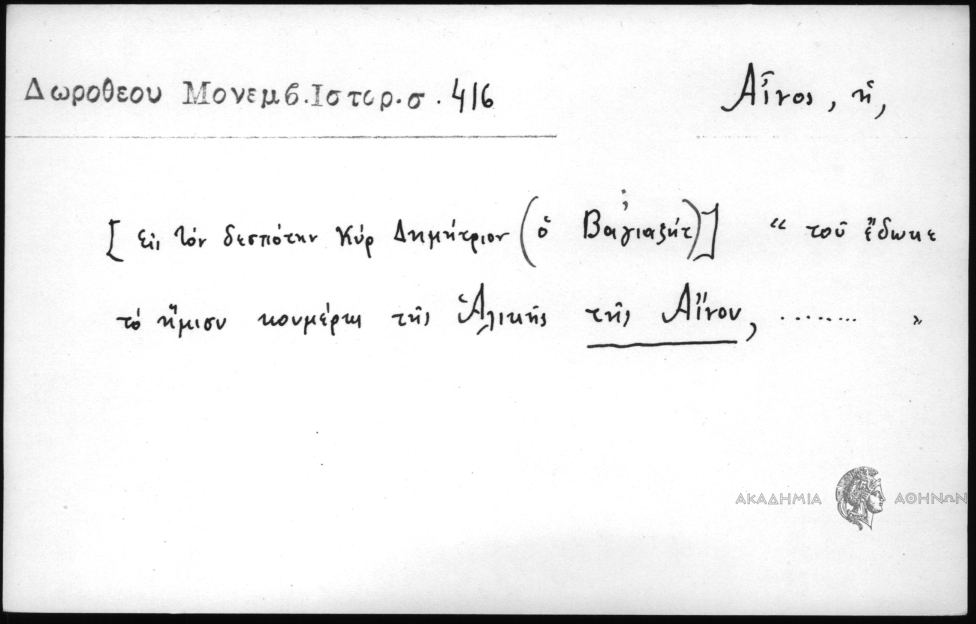 Δωροθεου Μονεμβ. Ιστορ. σ. 416
Αἶνος, ἡ,
[εἰς τὸν δεσπότην Κὺρ Δημήτριον (ὁ Βαγιαζήτ;)] “ τοῦ ἔδωκε
τὸ ἥμισυ κουμέρκι τῆς Ἁλικῆς τῆς Αἴνου, ........ ”
ΑΚΑΔΗΜΙΑ ΑΘΗΝΩΝ